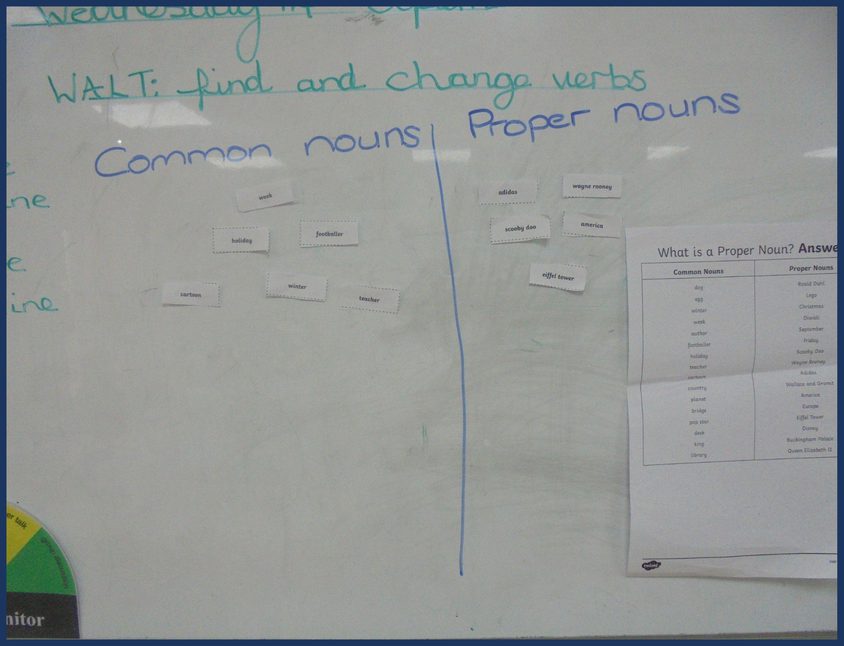 Wednesday
WALT: find and change verbs
Common nouns
Proper nouns
week
holiday
footballer
cartoon
winter
teacher
adidas
wayne rooney
scooby doo
america
eiffel tower
ne
e
ine
What is a Proper Noun? Answe
Common Nouns
Proper Nouns
dog
Roald Dahl
egg
Lego
winter
Christmas
week
Diwali
author
September
footballer
Friday
holiday
Scooby Doo
teacher
Wayne Rooney
cartoon
Adidas
country
Wallace and Gromit
planet
America
bridge
Europe
pop star
Eiffel Tower
desk
Disney
king
Buckingham Palace
library
Queen Elizabeth II
twinkl
er talk
nitor